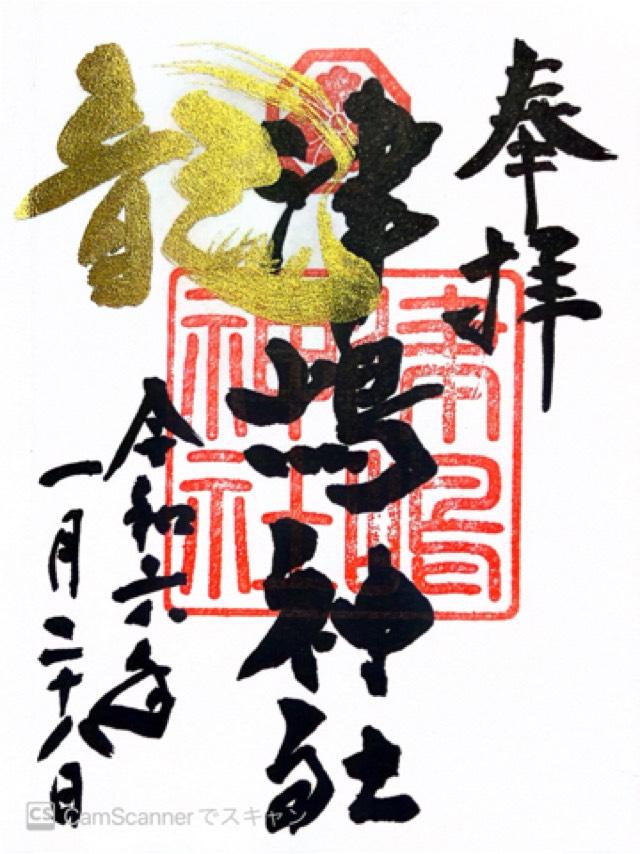 奉拝
津嶋神社
龍
令和六年
一月二十八日
CS CamScannerでスキャン